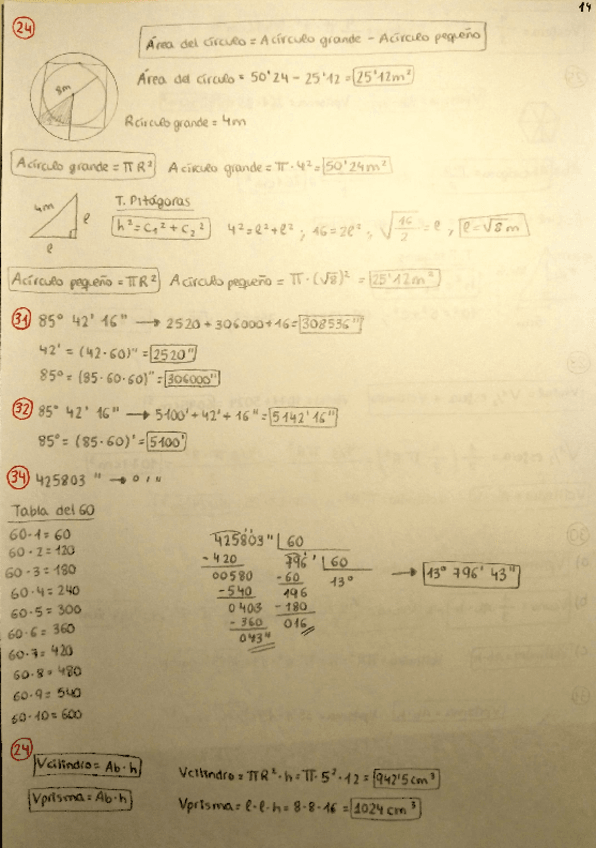 14
24
Área del círculo = Acírculo grande - Acírculo pequeño
Área del círculo = 50'24 - 25'12 = 25'12m²
8m
Rcírculo grande = 4m
Acírculo grande = πR² Acírculo grande = π·4² = 50'24m²
4m
ℓ
ℓ
T. Pitágoras
h² = c₁² + c₂² 4² = ℓ² + ℓ² ; 16 = 2ℓ² ; √16/2 = ℓ , ℓ = √8 m
Acírculo pequeño = πR² Acírculo pequeño = π·(√8)² = 25'12m²
31 85° 42' 16" → 2520 + 306000 + 16 = 308536"
42' = (42·60)" = 2520"
85° = (85·60·60)" = 306000"
32 85° 42' 16" → 5100' + 42' + 16" = 5142' 16"
85° = (85·60)' = 5100'
34 425803 " → ° ' "
Tabla del 60
60·1 = 60
60·2 = 120
60·3 = 180
60·4 = 240
60·5 = 300
60·6 = 360
60·7 = 420
60·8 = 480
60·9 = 540
60·10 = 600
425803" 60
-420 796' 60
00580 -60 13°
-540 196
0403 -180
-360 016'
043"
→ 13° 796' 43"
24
Vcilindro = Ab·h Vcilindro = πR²·h = π·5²·12 = 942'5 cm³
Vprisma = Ab·h Vprisma = ℓ·ℓ·h = 8·8·16 = 1024 cm³